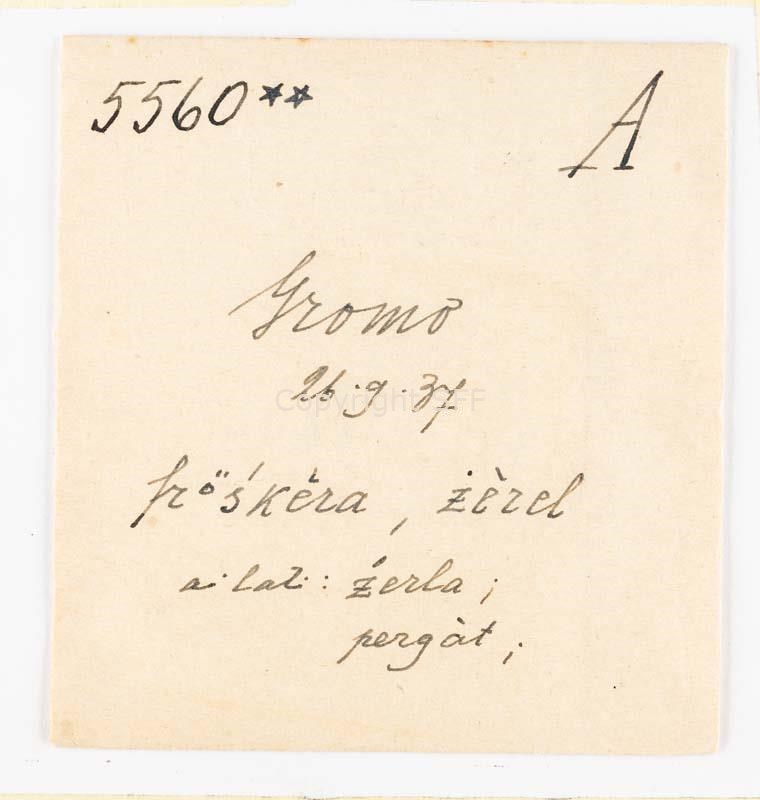 5560** A
Gromo
26.9.37
Copyright SFF
fröśkèra, żèrel
a. lat: żerla;
pergàt;